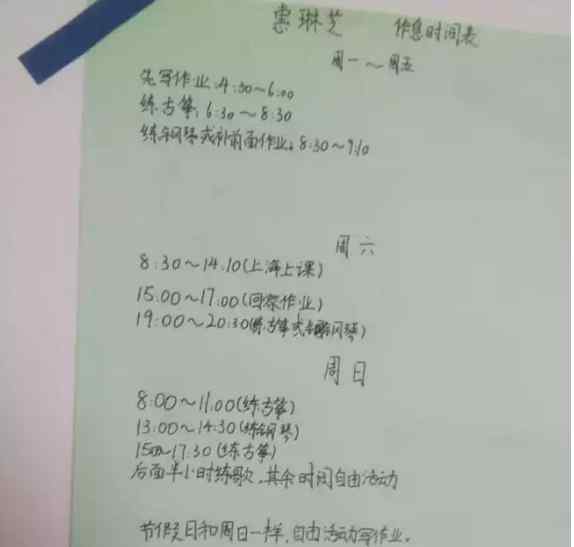 惠琳芝 作息时间表
周一～周五
先写作业:4:30～6:00
练古筝:6:30～8:30
练钢琴或补前面作业:8:30～9:10
周六
8:30～14.10(上海上课)
15.00～17:00(回家作业)
19:00～20:30(练古筝或钢琴)
周日
8:00～11:00(练古筝)
13:00～14:30(练钢琴)
15:00～17:30(练古筝)
后面半小时练歌,其余时间自由活动
节假日和周日一样,自由活动写作业。